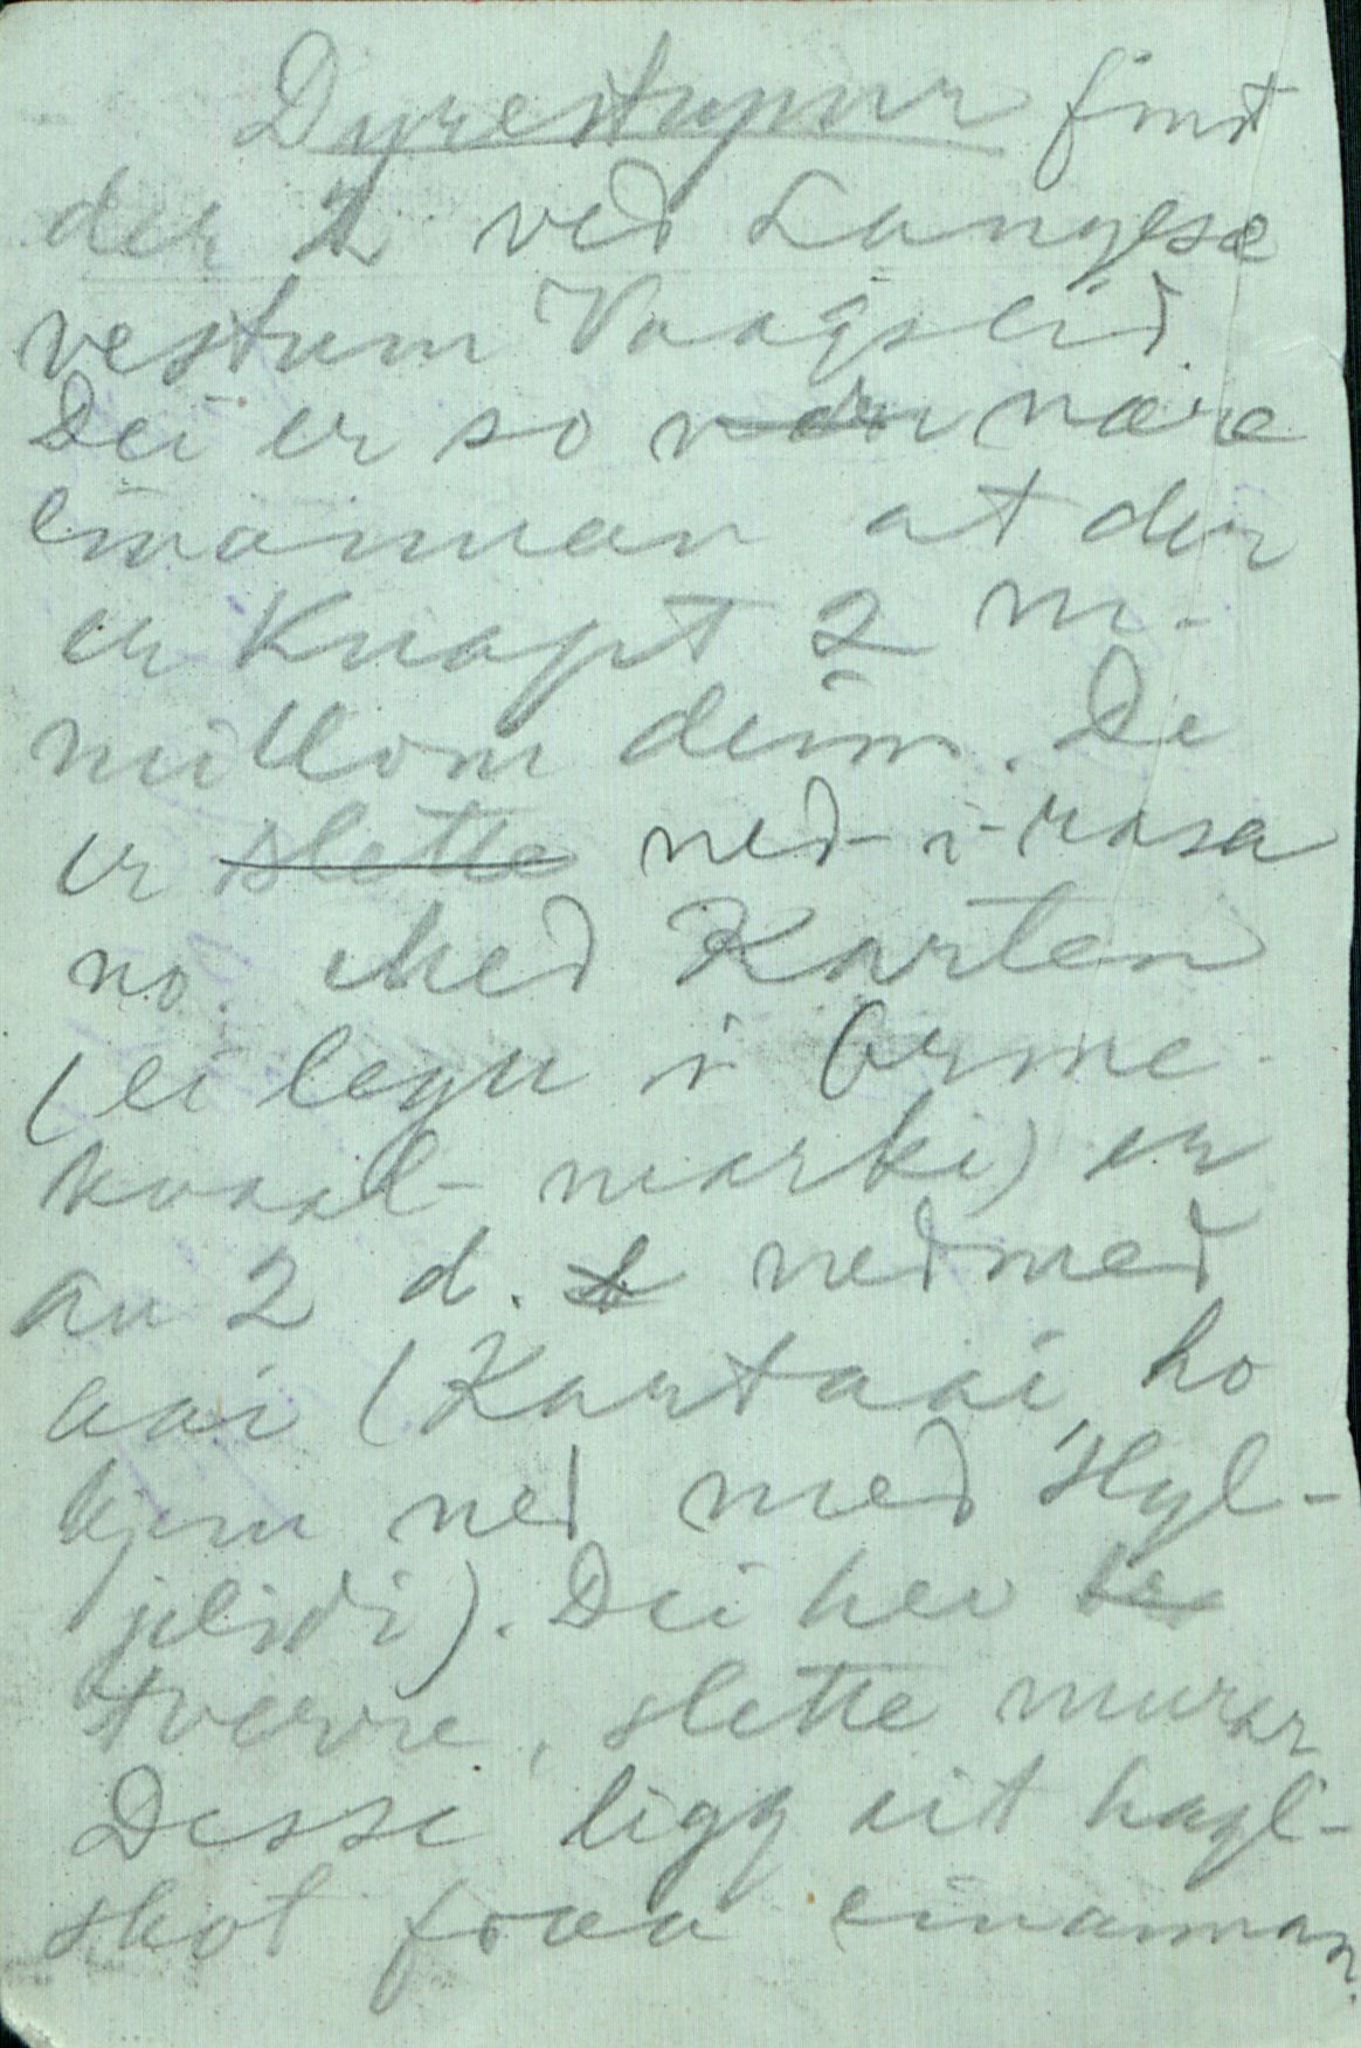 Dyrestupur finst
der 2 ved Langesæ
vestum Vaagslid.
Dei er so nær nære
einannan at der
er knapt 2 m.
millom deim. De
er slette ned-i-rasa
no. Med Karten
(ei legu i Orme-
kvaal-marki) er
au 2 d. nedmed
aai (Kartaai, ho
kjem ned med Hyl-
jelidi). Dei hev
tverre, slette murar
Desse ligg eit hagl-
skot fraa einannan.